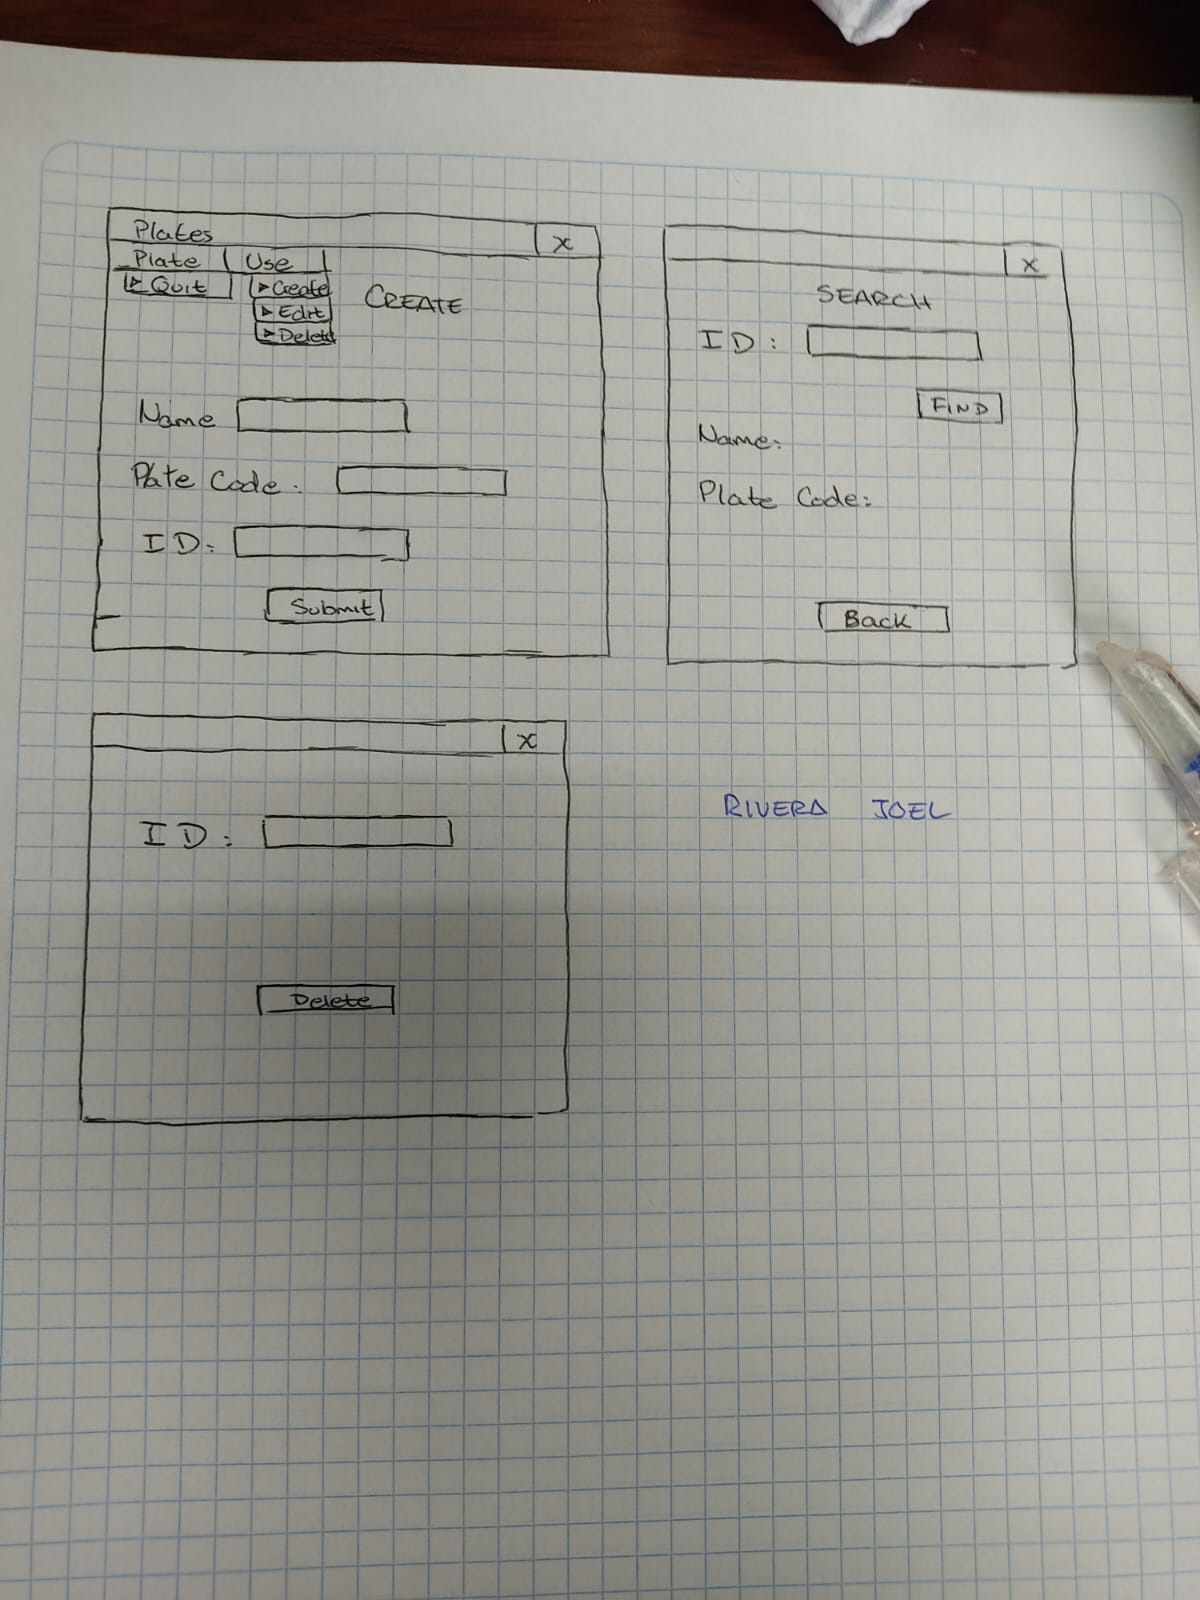 Plates X
Plate Use
▷ Quit
▷ Create
▷ Edit
▷ Delete
CREATE
Name
Plate Code:
ID:
Submit
X
SEARCH
ID:
FIND
Name:
Plate Code:
Back
X
ID:
Delete
RIVERA JOEL